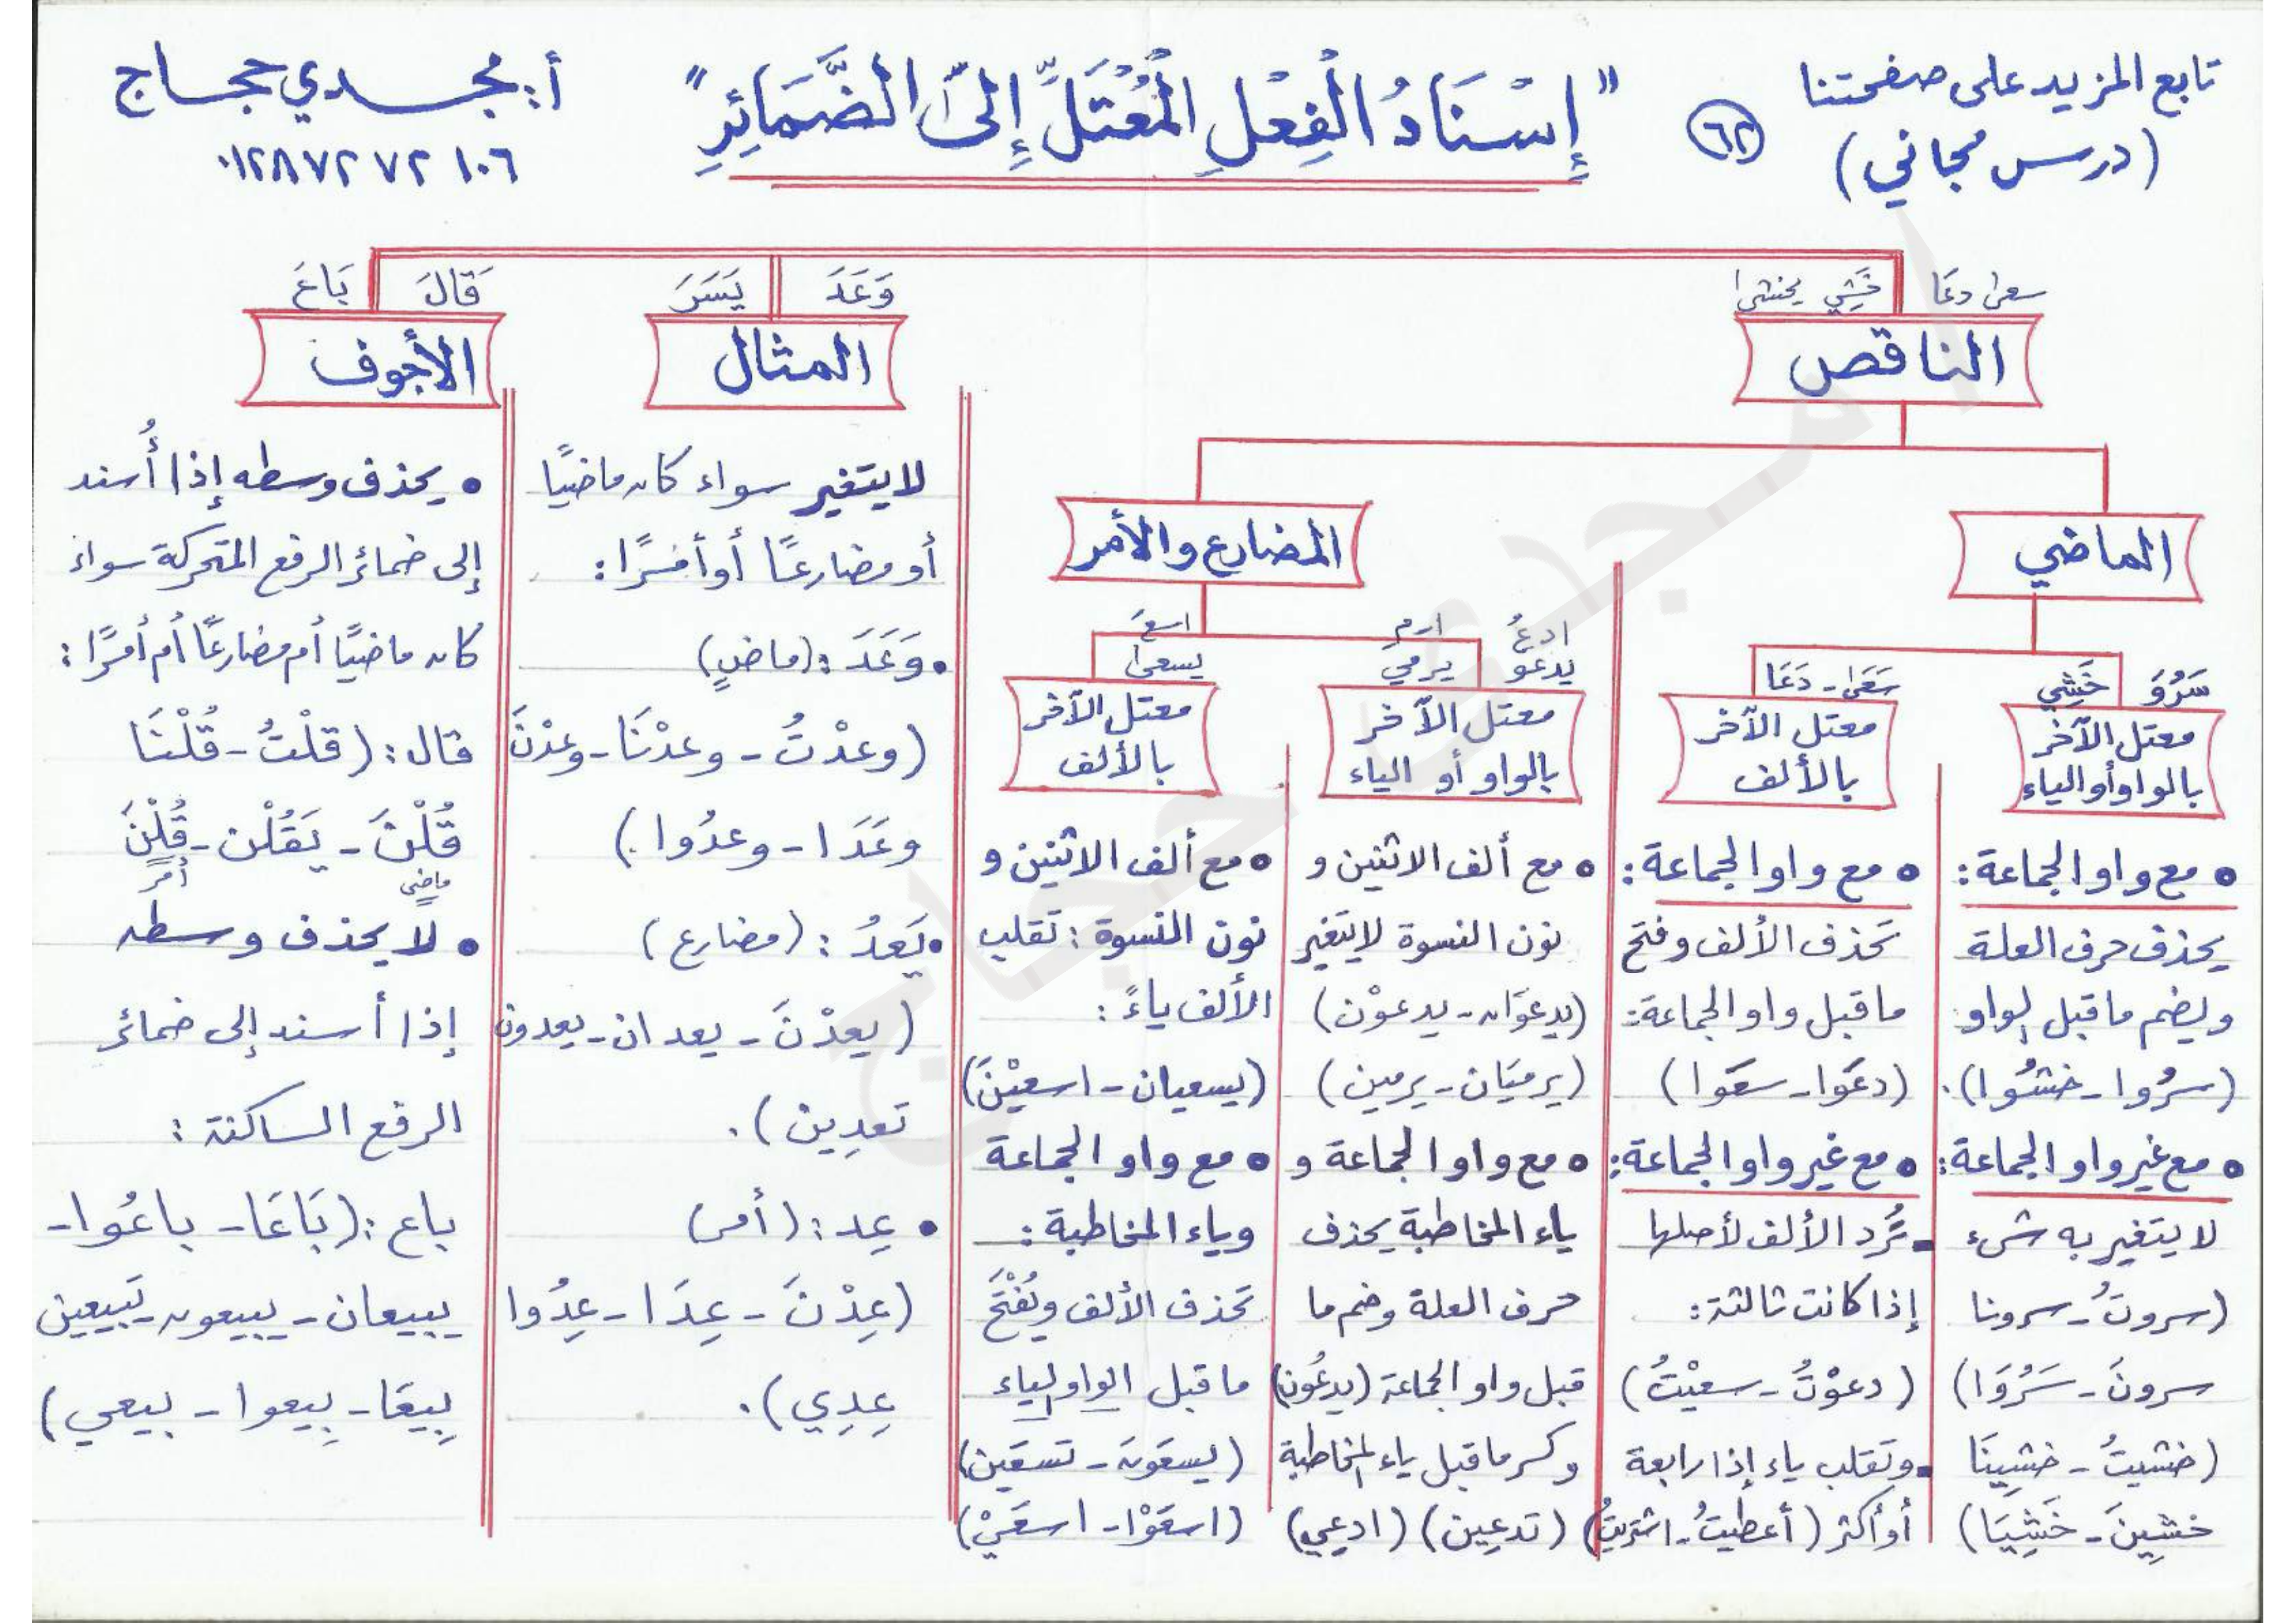 تابع المزيد على صفحتنا
(درس مجاني)
٦٢
"إِسْنَادُ الْفِعْلِ الْمُعْتَلِّ إِلَى الضَّمَائِرِ"
أ: مجدي حجاج
٠١٢٨٧٢٧٢١٠٦
سعى دعَا خَشِي يخشى
الناقص
وَعَدَ يَسَرَ
المثال
قَالَ بَاعَ
الأجوف
الماضي
المضارع والأمر
سَرُوَ خَشِي
معتل الآخر
بالواو أو الياء
• مع واو الجماعة:
يحذف حرف العلة
ويضم ما قبل الواو
(سرُوا - خشُوا).
• مع غير واو الجماعة:
لا يتغير به شيء
(سروتُ - سرونا
سرونَ - سَرُوَا)
(خشيتُ - خشِينَا
خشِينَ - خَشِيَا)
سَعَى - دَعَا
معتل الآخر
بالألف
• مع واو الجماعة:
تحذف الألف وفتح
ما قبل واو الجماعة:
(دعَوا - سعَوا)
• مع غير واو الجماعة:
- تُرد الألف لأصلها
إذا كانت ثالثة:
(دعوْتُ - سعيْتُ)
- وتقلب ياء إذا رابعة
أو أكثر (أعطيتُ - اشتريتُ)
ادعُ ارمِ
يدعو يرمي
معتل الآخر
بالواو أو الياء
• مع ألف الاثنين و
نون النسوة لا يتغير
(يدعوَان - يدعوْن)
(يرميَان - يرمين)
• مع واو الجماعة و
ياء المخاطبة يحذف
حرف العلة وضم ما
قبل واو الجماعة (يدعُون)
وكسر ما قبل ياء المخاطبة
(تدعِين) (ادعِي)
اسعَ
يسعى
معتل الآخر
بالألف
• مع ألف الاثنين و
نون النسوة: تقلب
الألف ياءً:
(يسعيان - اسعيْنَ)
• مع واو الجماعة
وياء المخاطبة:
تحذف الألف ويُفْتَح
ما قبل الواو الياء
(يسعَون - تسعَين)
(اسعَوْا - اسعَيْ)
لا يتغير سواء كان ماضيًا
أو مضارعًا أو أمرًا:
• وَعَدَ: (ماضٍ)
(وعدْتُ - وعدْنَا - وعدْنَ
وعَدَا - وعدُوا)
• يَعدُ: (مضارع)
(يعدْنَ - يعدان - يعدون
تعدِين).
• عِد: (أمر)
(عِدْنَ - عِدَا - عِدُوا
عِدِي).
• يحذف وسطه إذا أُسند
إلى ضمائر الرفع المتحركة سواء
كان ماضيًا أم مضارعًا أم أمرًا:
قال: (قلْتُ - قُلْنَا
قُلْنَ - يَقُلْن - قُلْنَ
ماضي أمر
• لا يحذف وسطه
إذا أسند إلى ضمائر
الرفع الساكنة:
باع: (بَاعَا - باعُوا -
يبيعان - يبيعون - تَبيعين
بِيعَا - بِيعوا - بيعي)
أ/ مجدى حجاج